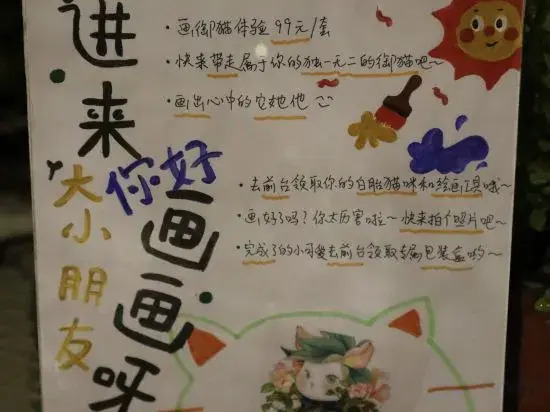 进来画画呀
你好
大小朋友
·画御猫体验99元/套
·快来带走属于你的独一无二的御猫吧~
·画出心中的它她他
·去前台领取你的白胎猫咪和绘画工具哦~
·画好了吗?你太厉害啦~快来拍个照片吧~
·完成了的小可爱去前台领取专属包装盒哟~